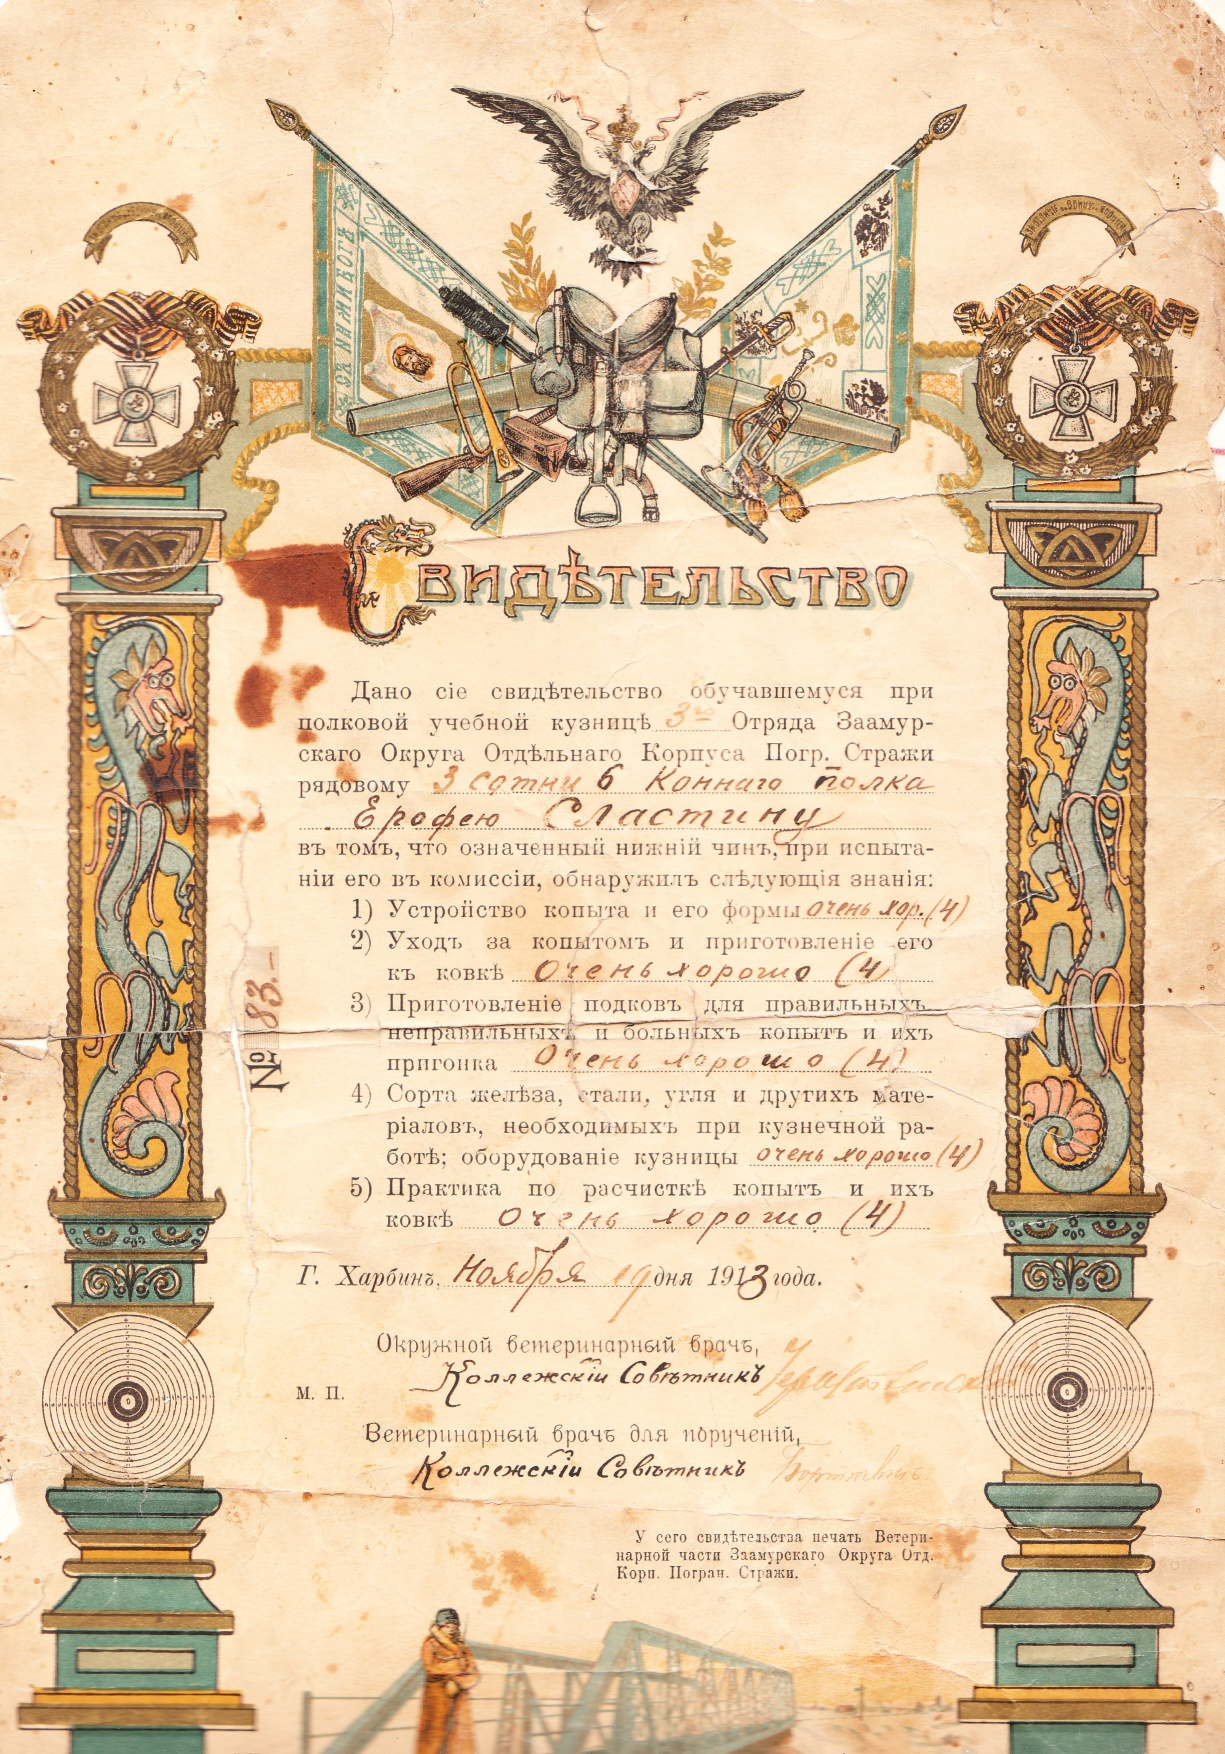 СЪ НИМИ БОГЪ
Свидѣтельство
Дано сіе свидѣтельство обучавшемуся при
полковой учебной кузницѣ 3го Отряда Заамур-
скаго Округа Отдѣльнаго Корпуса Погр. Стражи
рядовому 3 сотни 6 Коннаго полка
Ерофею Сластину
въ томъ, что означенный нижній чинъ, при испыта-
ніи его въ комиссіи, обнаружилъ слѣдующія знанія:
1) Устройство копыта и его формы очень хор. (4)
2) Уходъ за копытомъ и приготовленіе его
къ ковкѣ Очень хорошо (4)
3) Приготовленіе подковъ для правильныхъ
неправильныхъ и больныхъ копытъ и ихъ
пригонка Очень хорошо (4)
4) Сорта желѣза, стали, угля и другихъ мате-
ріаловъ, необходимыхъ при кузнечной ра-
ботѣ; оборудованіе кузницы очень хорошо (4)
5) Практика по расчисткѣ копытъ и ихъ
ковкѣ Очень хорошо (4)
№ 83.-
Г. Харбинъ, Ноября 19 дня 1913 года.
Окружной ветеринарный врачъ,
Коллежскій Совѣтникъ
М. П.
Ветеринарный врачъ для порученій,
Коллежскій Совѣтникъ
У сего свидѣтельства печать Ветери-
нарной части Заамурскаго Округа Отд.
Корп. Погран. Стражи.